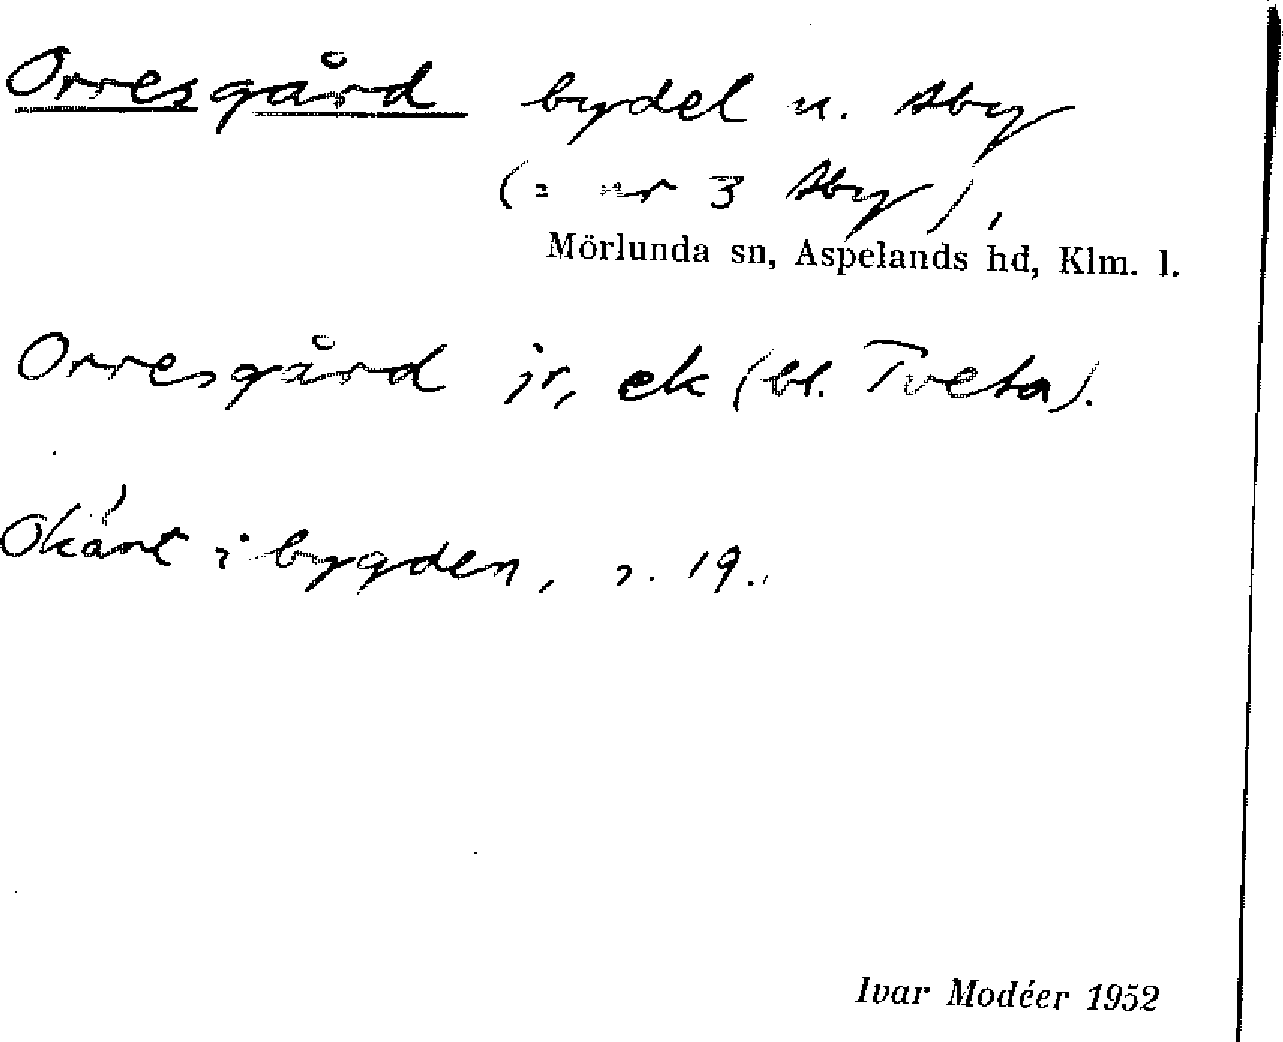 Orresgård bydel u. Åby
(= nr 3 Åby),
Mörlunda sn, Aspelands hd, Klm. l.
Orresgård jr, ek (bl. Tveta).
Okänt i bygden, s. 19.
Ivar Modéer 1952